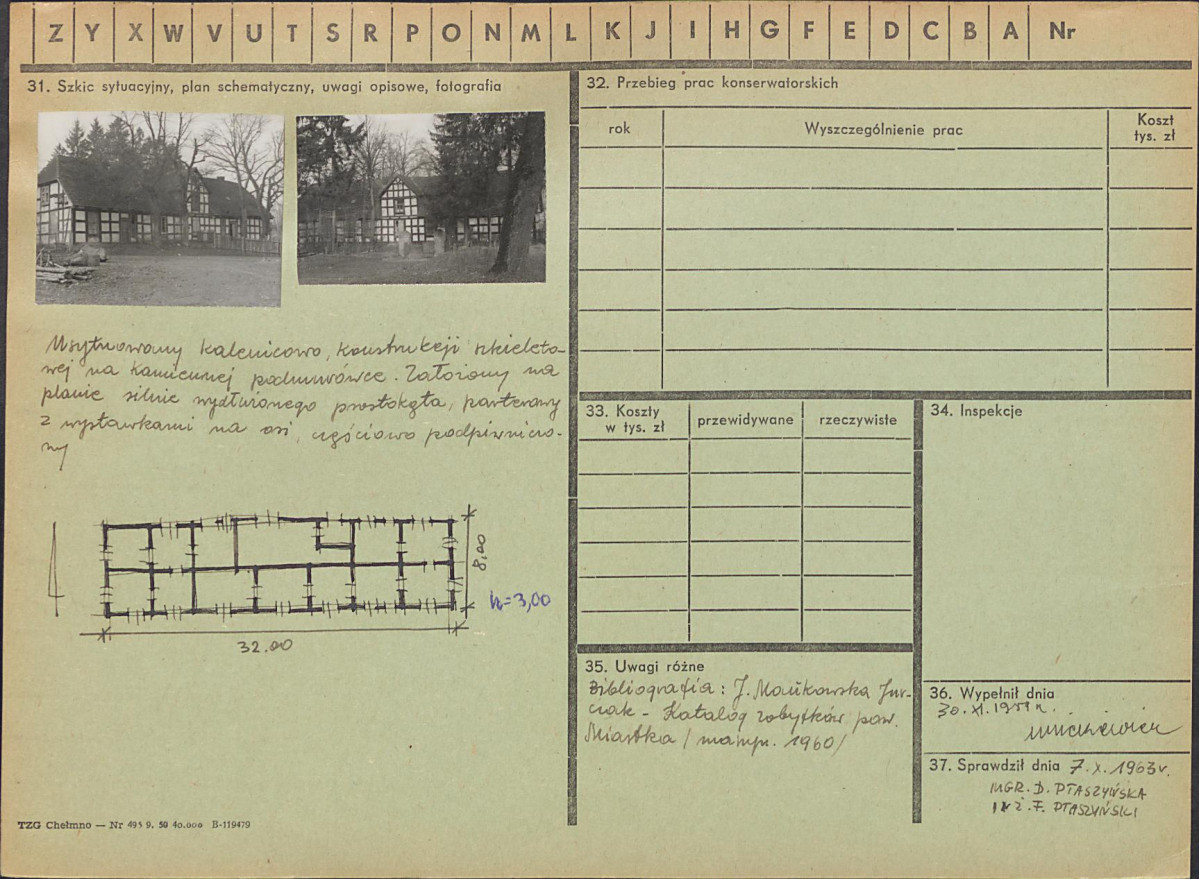 Z Y X W V U T S R P O N M L K J I H G F E D C B A Nr
31. Szkic sytuacyjny, plan schematyczny, uwagi opisowe, fotografia
Usytuowany kalenicowo, konstrukcji szkieleto-
wej na kamiennej podmurówce. Założony na
planie silnie wydłużonego prostokąta, parterowy
z wystawkami na osi, częściowo podpiwniczo-
ny
8,00
h=3,00
32.00
TZG Chełmno — Nr 495 9. 59 40.000 B-119479
32. Przebieg prac konserwatorskich
rok
Wyszczególnienie prac
Koszt
tys. zł
33. Koszty
w tys. zł
przewidywane
rzeczywiste
34. Inspekcje
35. Uwagi różne
Bibliografia: J. Mańkowska Jur-
czak - Katalog zabytków pow.
Miastka / maszp. 1960/
36. Wypełnił dnia
30.XI.1959 r.
37. Sprawdził dnia 7.X.1963r.
MGR. D. PTASZYŃSKA
INŻ. F. PTASZYŃSKI